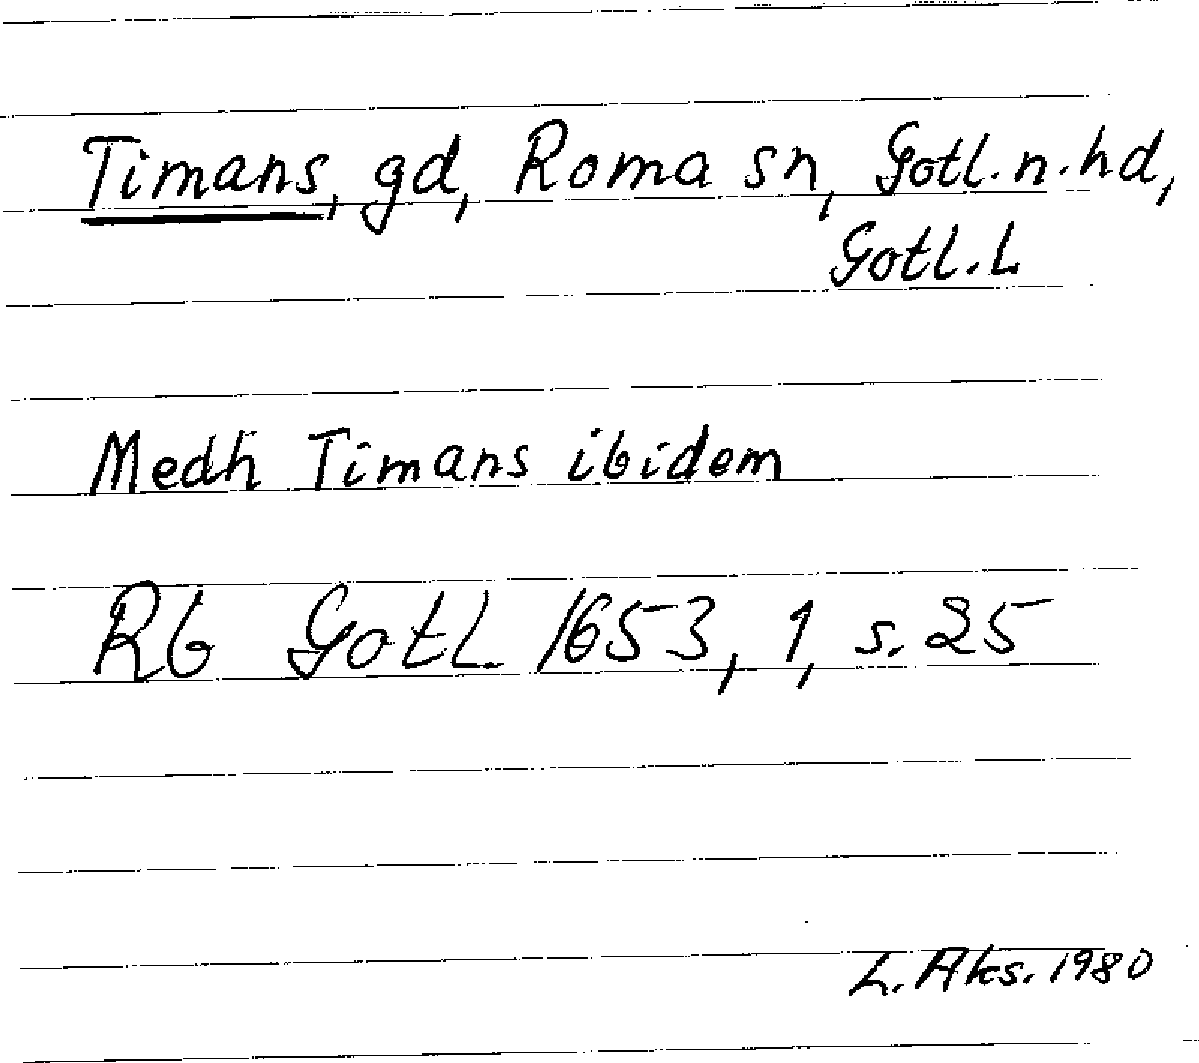 Timans, gd, Roma sn, Gotl.n.hd,
Gotl.L
Medh Timans ibidem
Rb Gotl. 1653, 1, s. 25
L. Aks. 1980